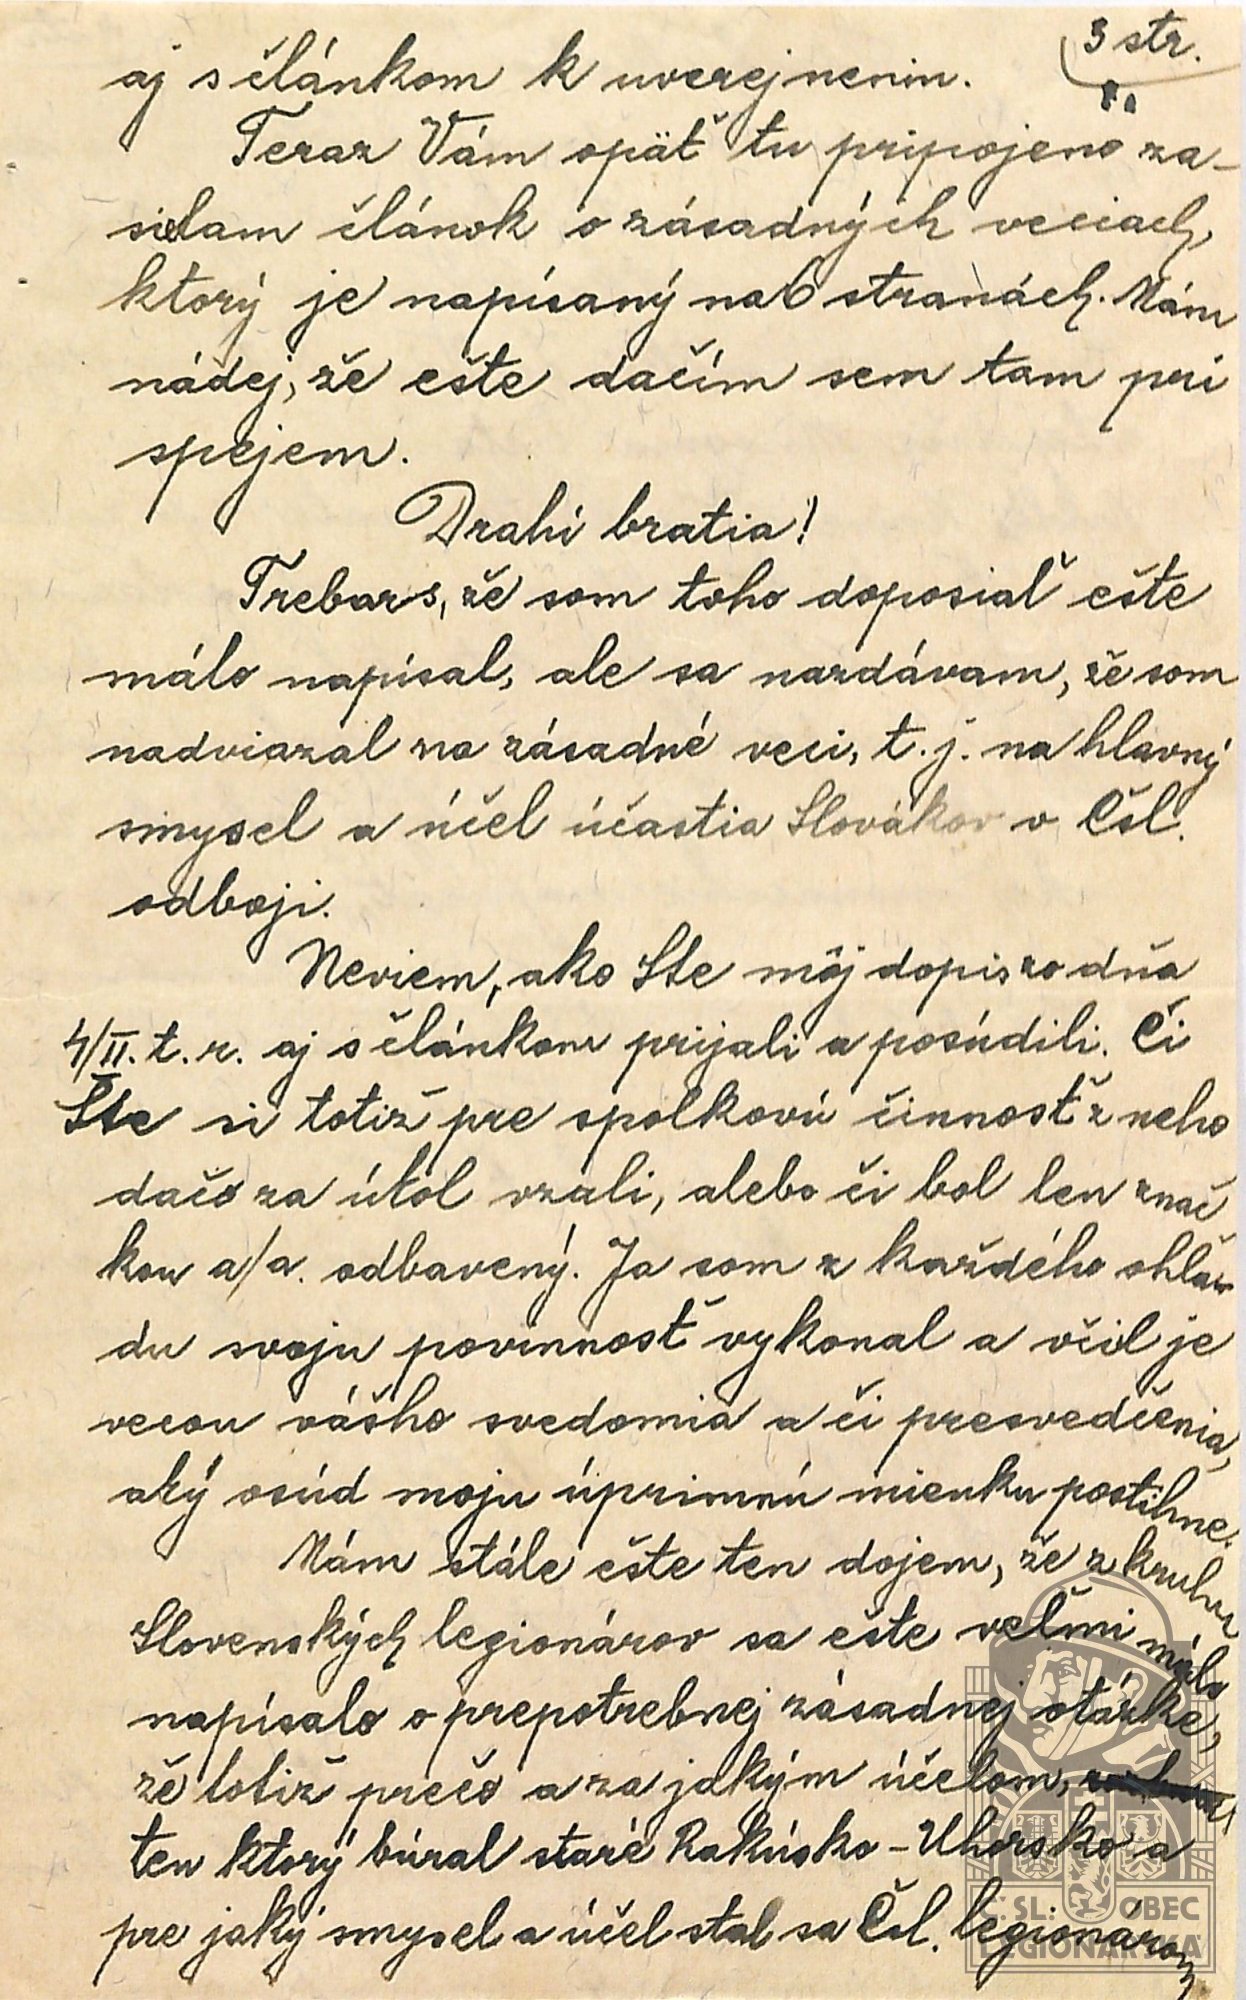 3 str.
aj s článkom k uverejnenin.
Teraz Vám opäť tu pripojeno za-
sielam článok o zásadných veciach,
ktorý je napísaný na 6 stranách. Mám
nádej, že ešte dačím sem tam pri
spejem.
Drahí bratia!
Trebars, že som toho doposiaľ ešte
málo napísal, ale sa nazdávam, že som
nadviazal na zásadné veci, t. j. na hlavný
smysel a účel účastia Slovákov v Čsl.
odboji.
Neviem, ako Ste môj dopis zo dňa
4/II. t. r. aj s článkom prijali a posúdili. Či
Ste si totiž pre spolkovú činnosť z neho
dačo za úkol vzali, alebo či bol len znač
kou a/a. odbavený. Ja som z každého ohľa
du svoju povinnosť vykonal a včil je
vecou vášho svedomia a či presvedčenia,
aký osúd moju úprimnú mienku postihne.
Mám stále ešte ten dojem, že z kruhu
Slovenských legionárov sa ešte veľmi málo
napísalo o prepotrebnej zásadnej otázke,
že totiž prečo a za jakým účelom,
ten ktorý búral staré Rakúsko-Uhorsko a
pre jaký smysel a účel stal sa Čsl. legionárom
Č. SL. OBEC
LEGIONÁŘSKÁ